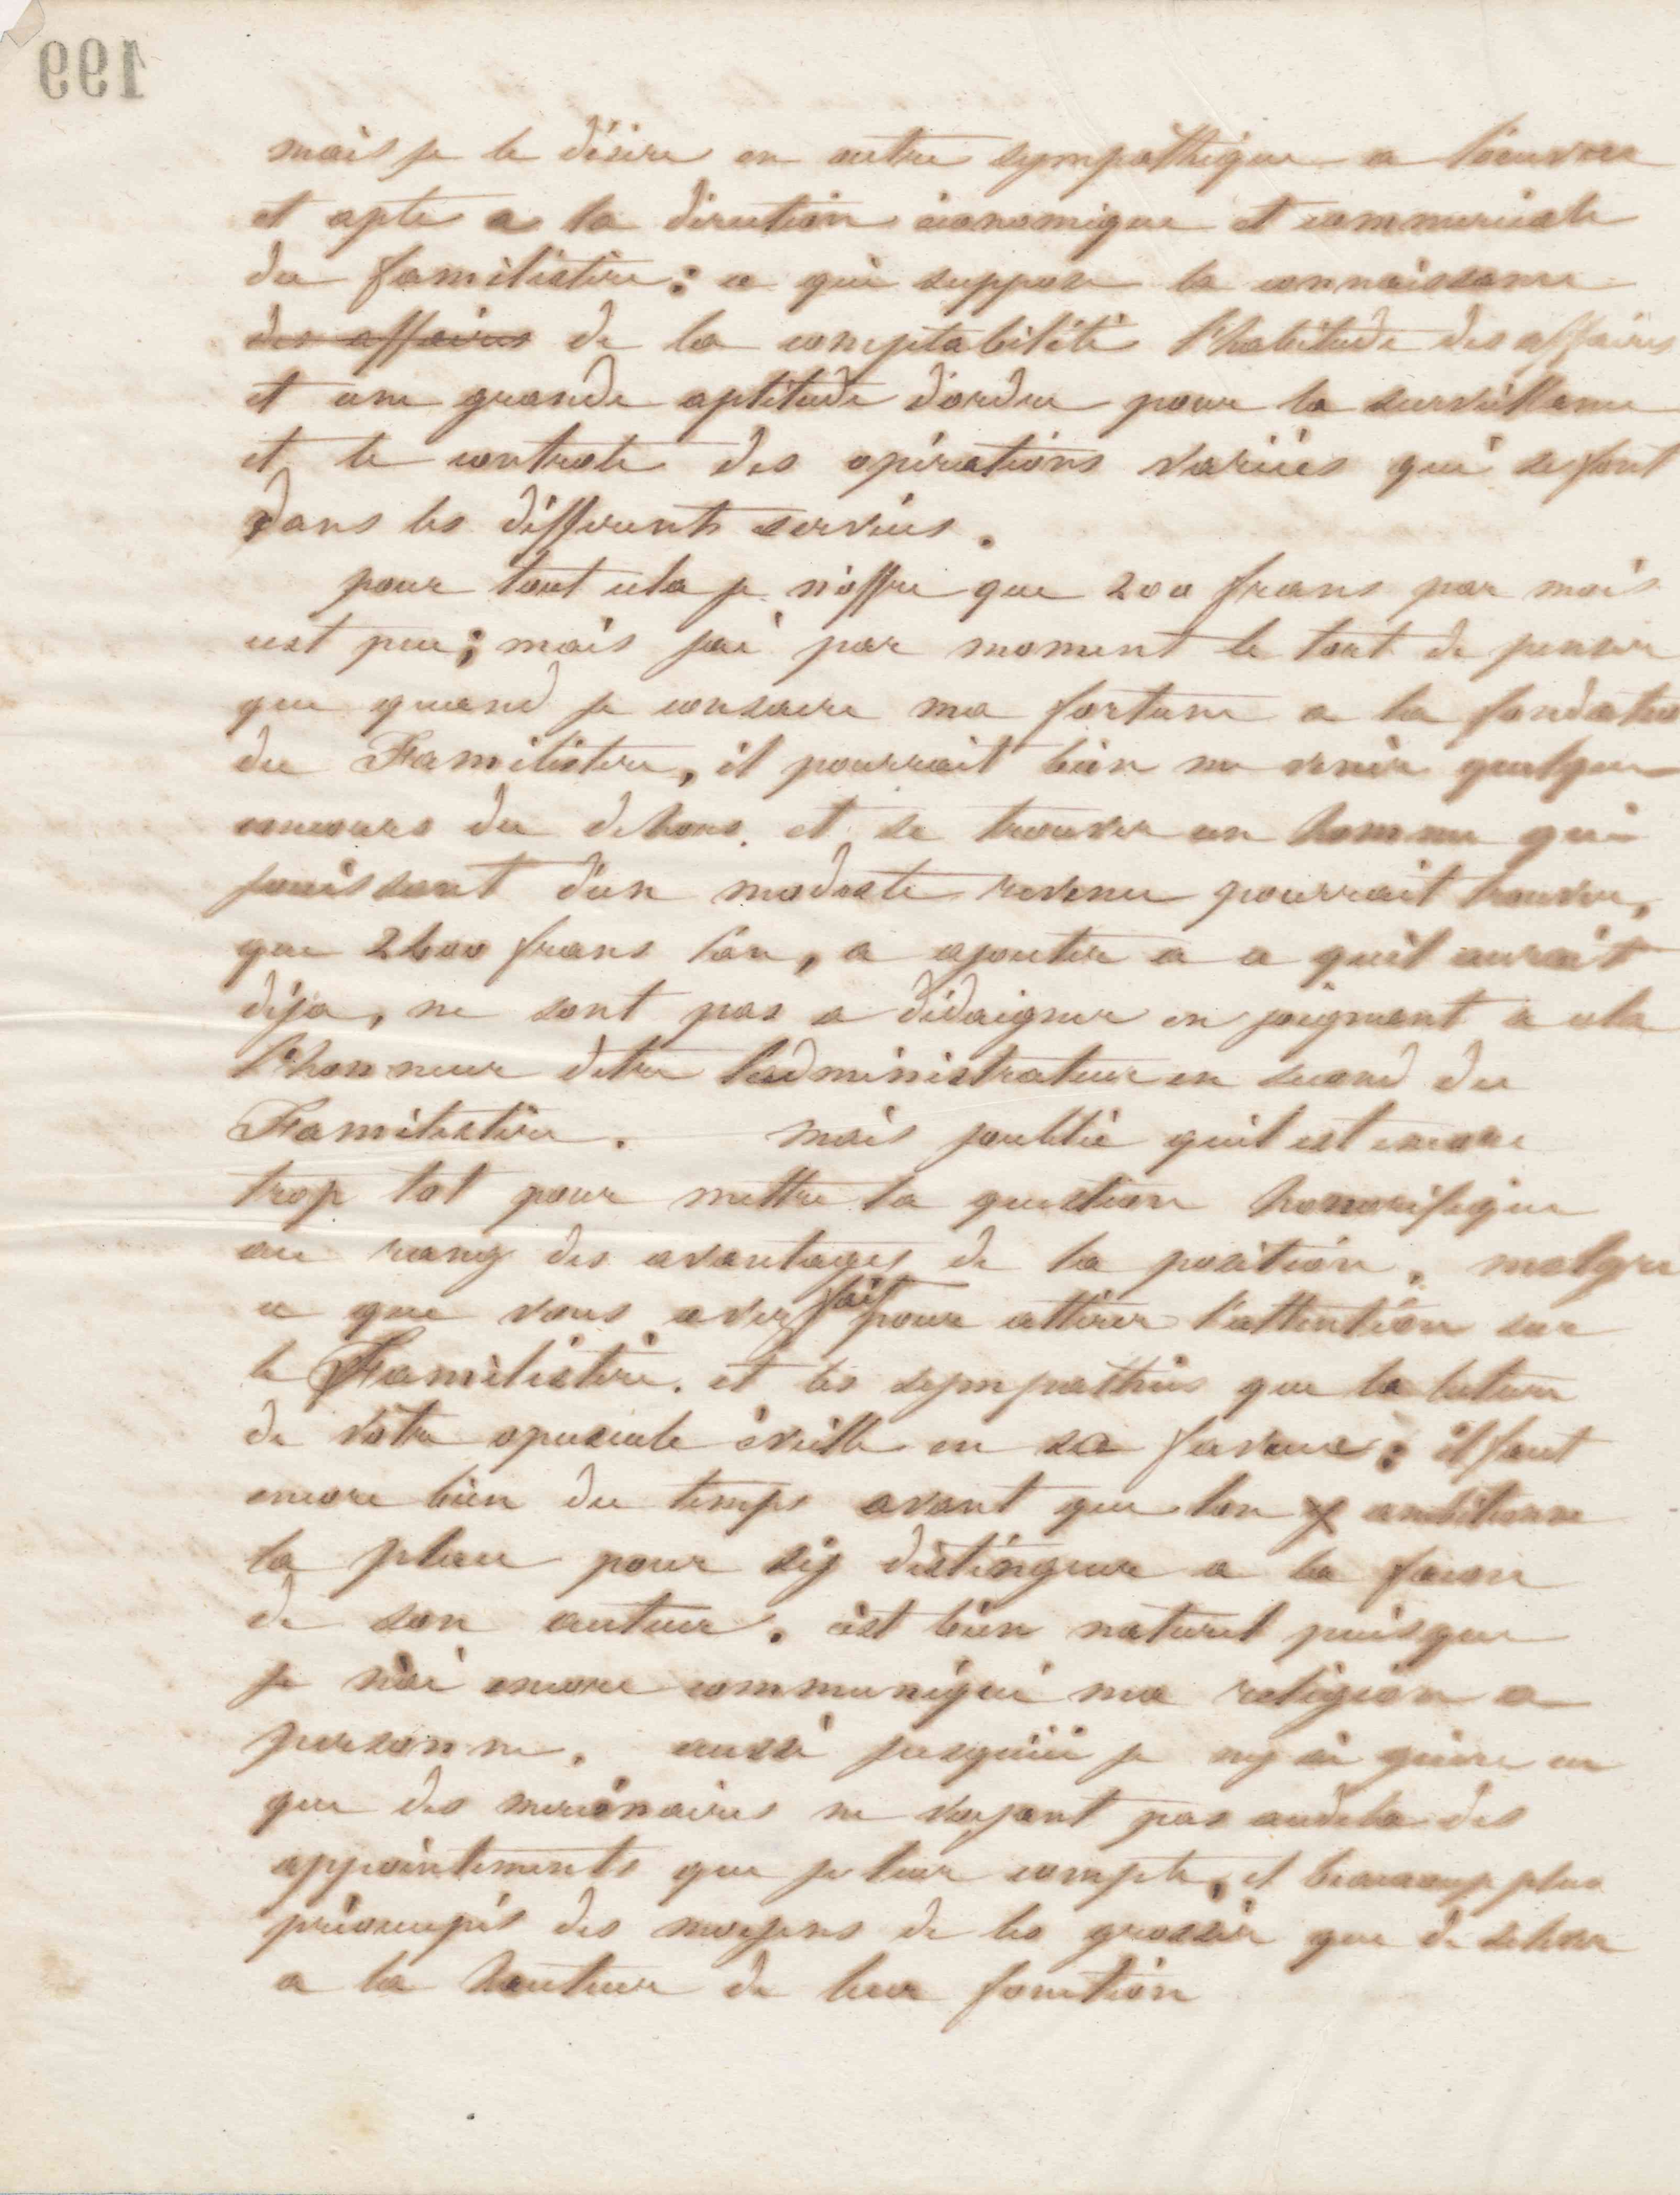 199
mais je le désire en outre sympathique a l'oeuvre
et apte a la direction économique et commerciale
du familistère : ce qui suppose la connaissance
des affaires de la comptabilité l'habitude des affaires
et une grande aptitude d'ordre pour la surveillance
et le controle des opérations variées qui se font
dans les différents services.
pour tout cela je n'offre que 200 francs par mois
cest peu ; mais jai par moment le tort de penser
que quand je consacre ma fortune a la fondation
du Familistère, il pourrait bien me venir quelque
concours du dehors. et se trouver un homme qui
jouissant d'un modeste revenu pourrait trouver,
que 2400 francs l'an, a ajouter a ce quil aurait
déja, ne sont pas a dédaigner en joignant a cela
l'honneur detre l'administrateur en second du
Familistère. mais joublie quil est encore
trop tot pour mettre la question honorifique
au rang des avantages de la position. malgré
ce que vous avez fait pour attirer l'attention sur
le Familistère. et les sympathies que la lecture
de votre opuscule éveille en sa faveur ; il faut
encore bien du temps avant que lon ambitionne
la place pour sy distinguer a la facon
de son auteur. cest bien naturel puisque
je n'ai encore communiqué ma religion a
personne. aussi jusquici je ny ai guère eu
que des mercénaires ne voyant pas audela des
appointements que je leur compte, et beaucoup plus
préoccupés des moyens de les grossir que de selever
a la hauteur de leur fonction